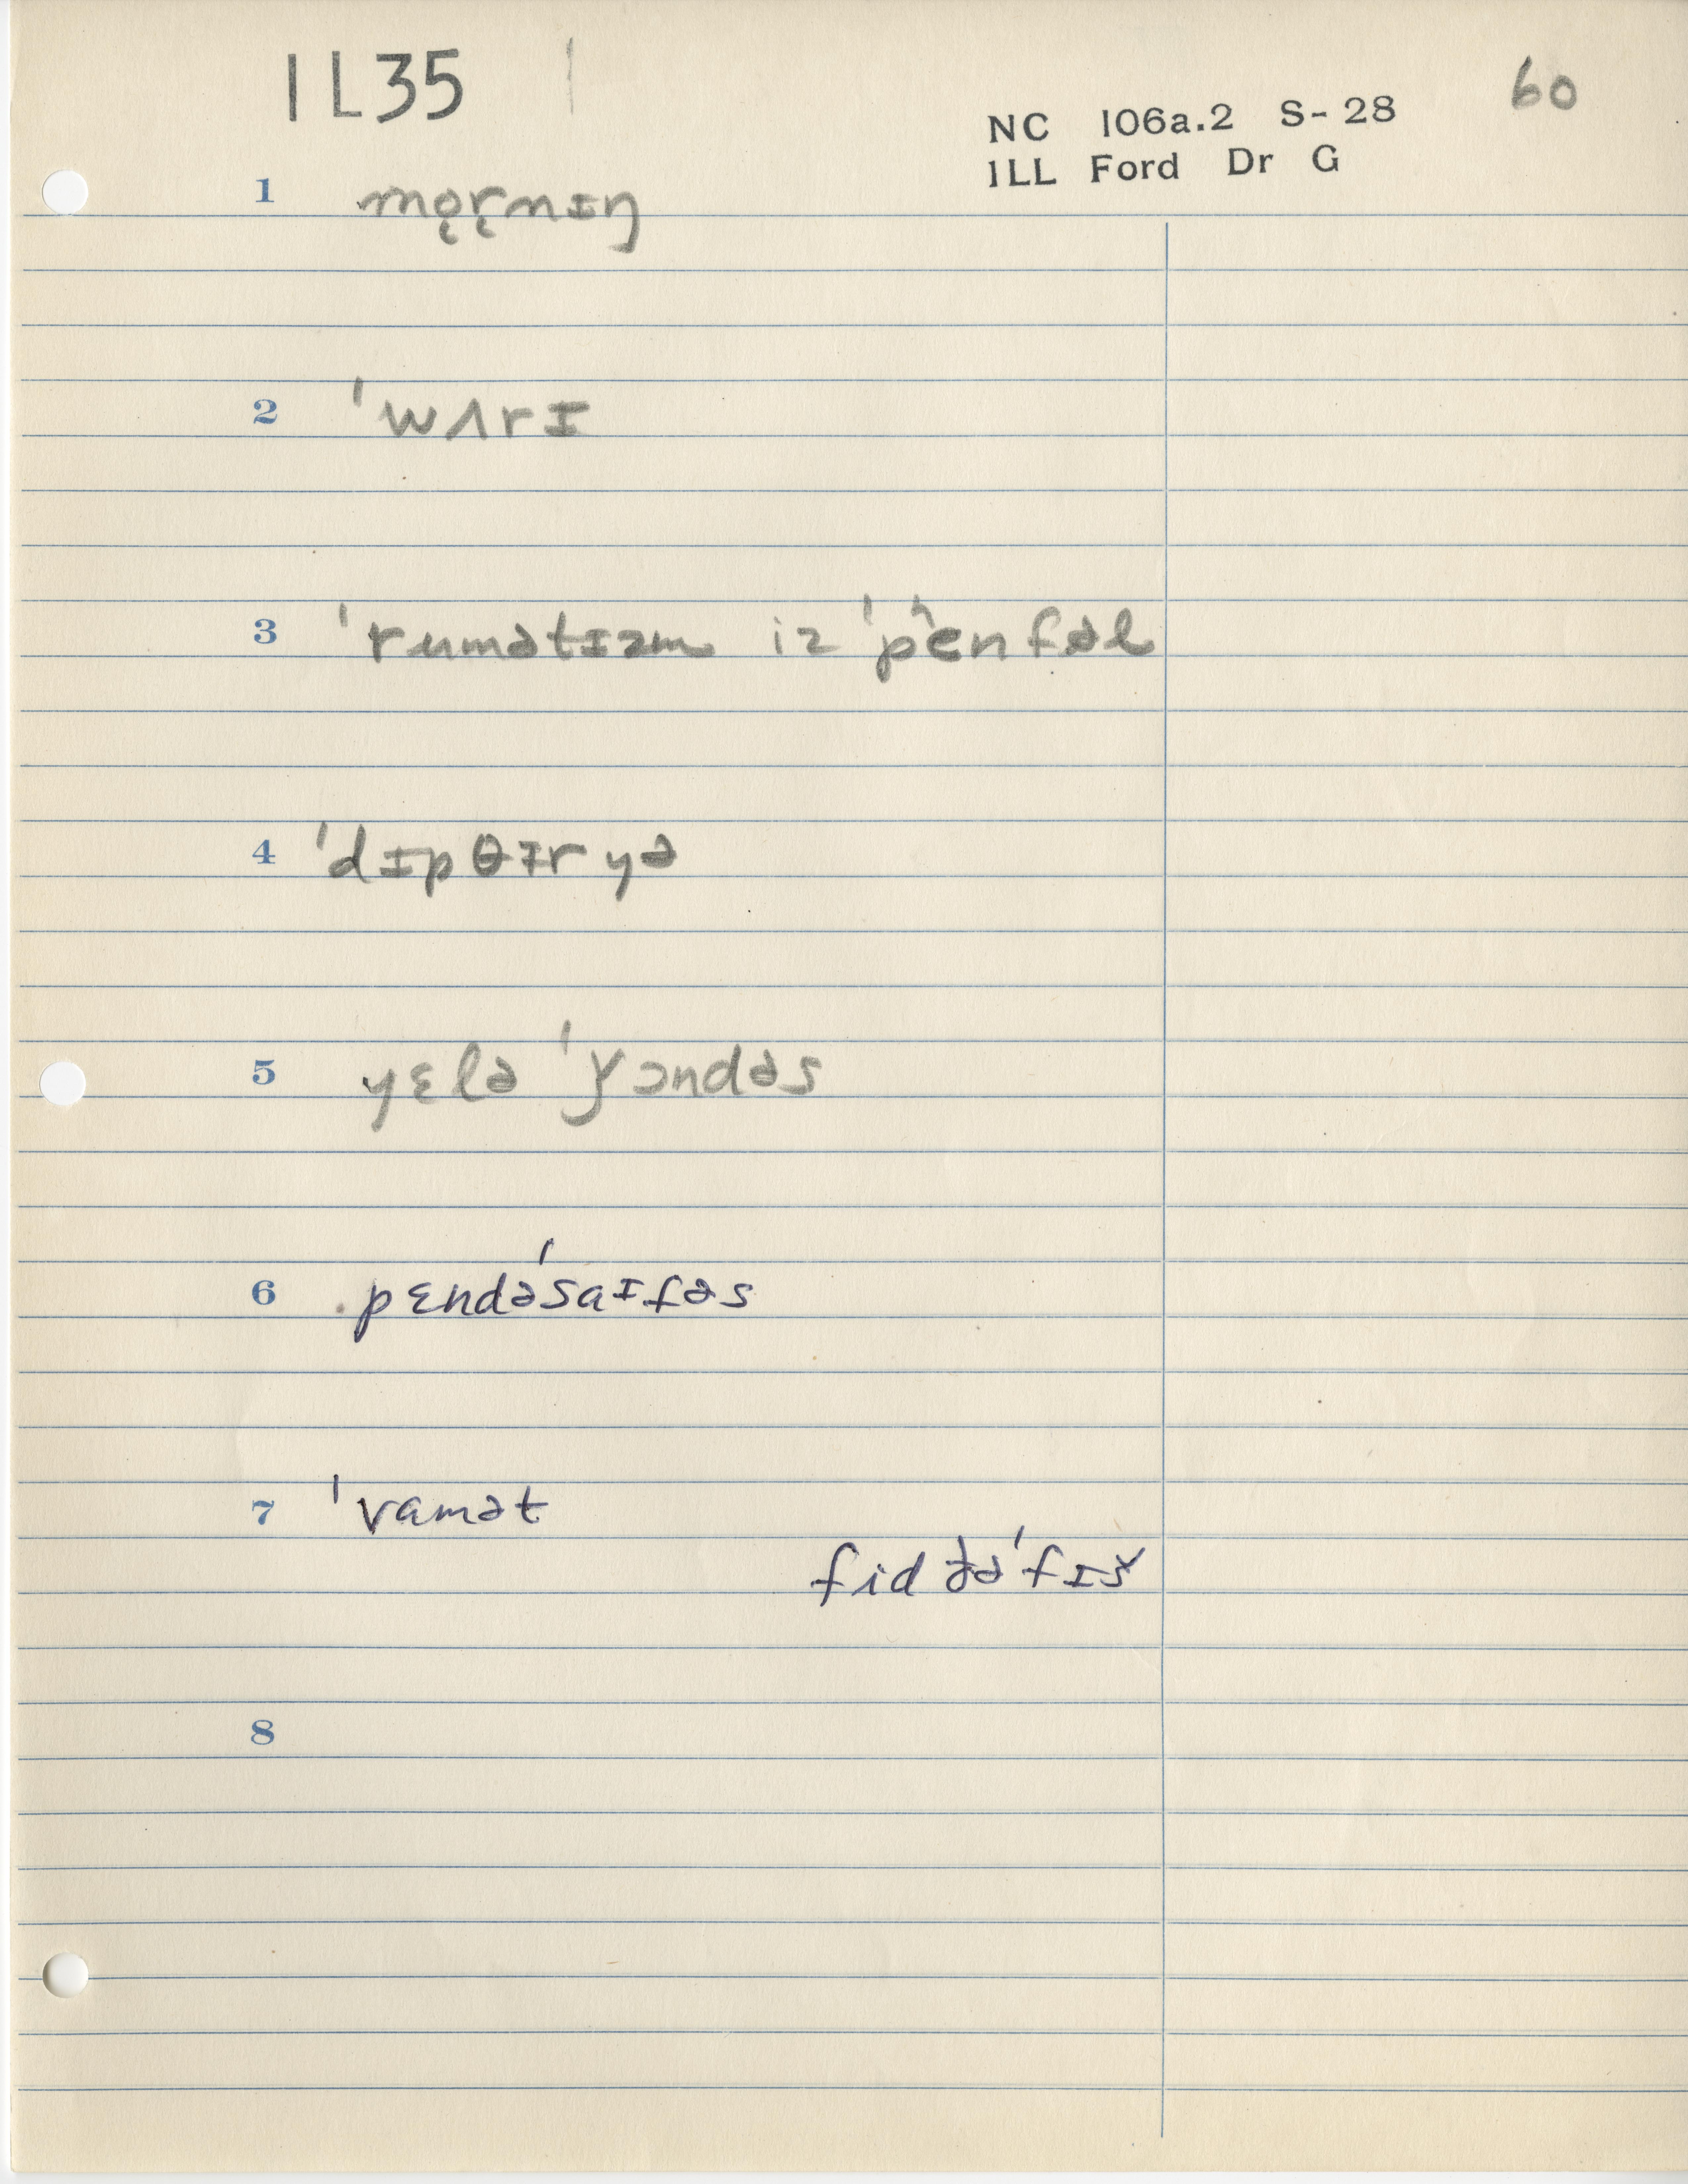 1L35
60
NC 106a.2 S-28
ILL Ford Dr G
1 mo̜r̜nɪŋ
2 ˈwʌrɪ
3 ˈrumətɪzm iz ˈpʰenfəl
4 ˈdɪpθɪryə
5 yɛlə ˈǰɔndəs
6 pɛndəˈsaɪfəs
7 ˈvamət
fid ðəˈfɪš
8